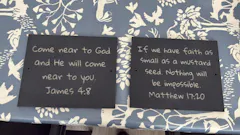 Come near to God
and He will come
near to you.
James 4:8
If we have faith as
small as a mustard
seed. Nothing will
be impossible.
Matthew 17:20